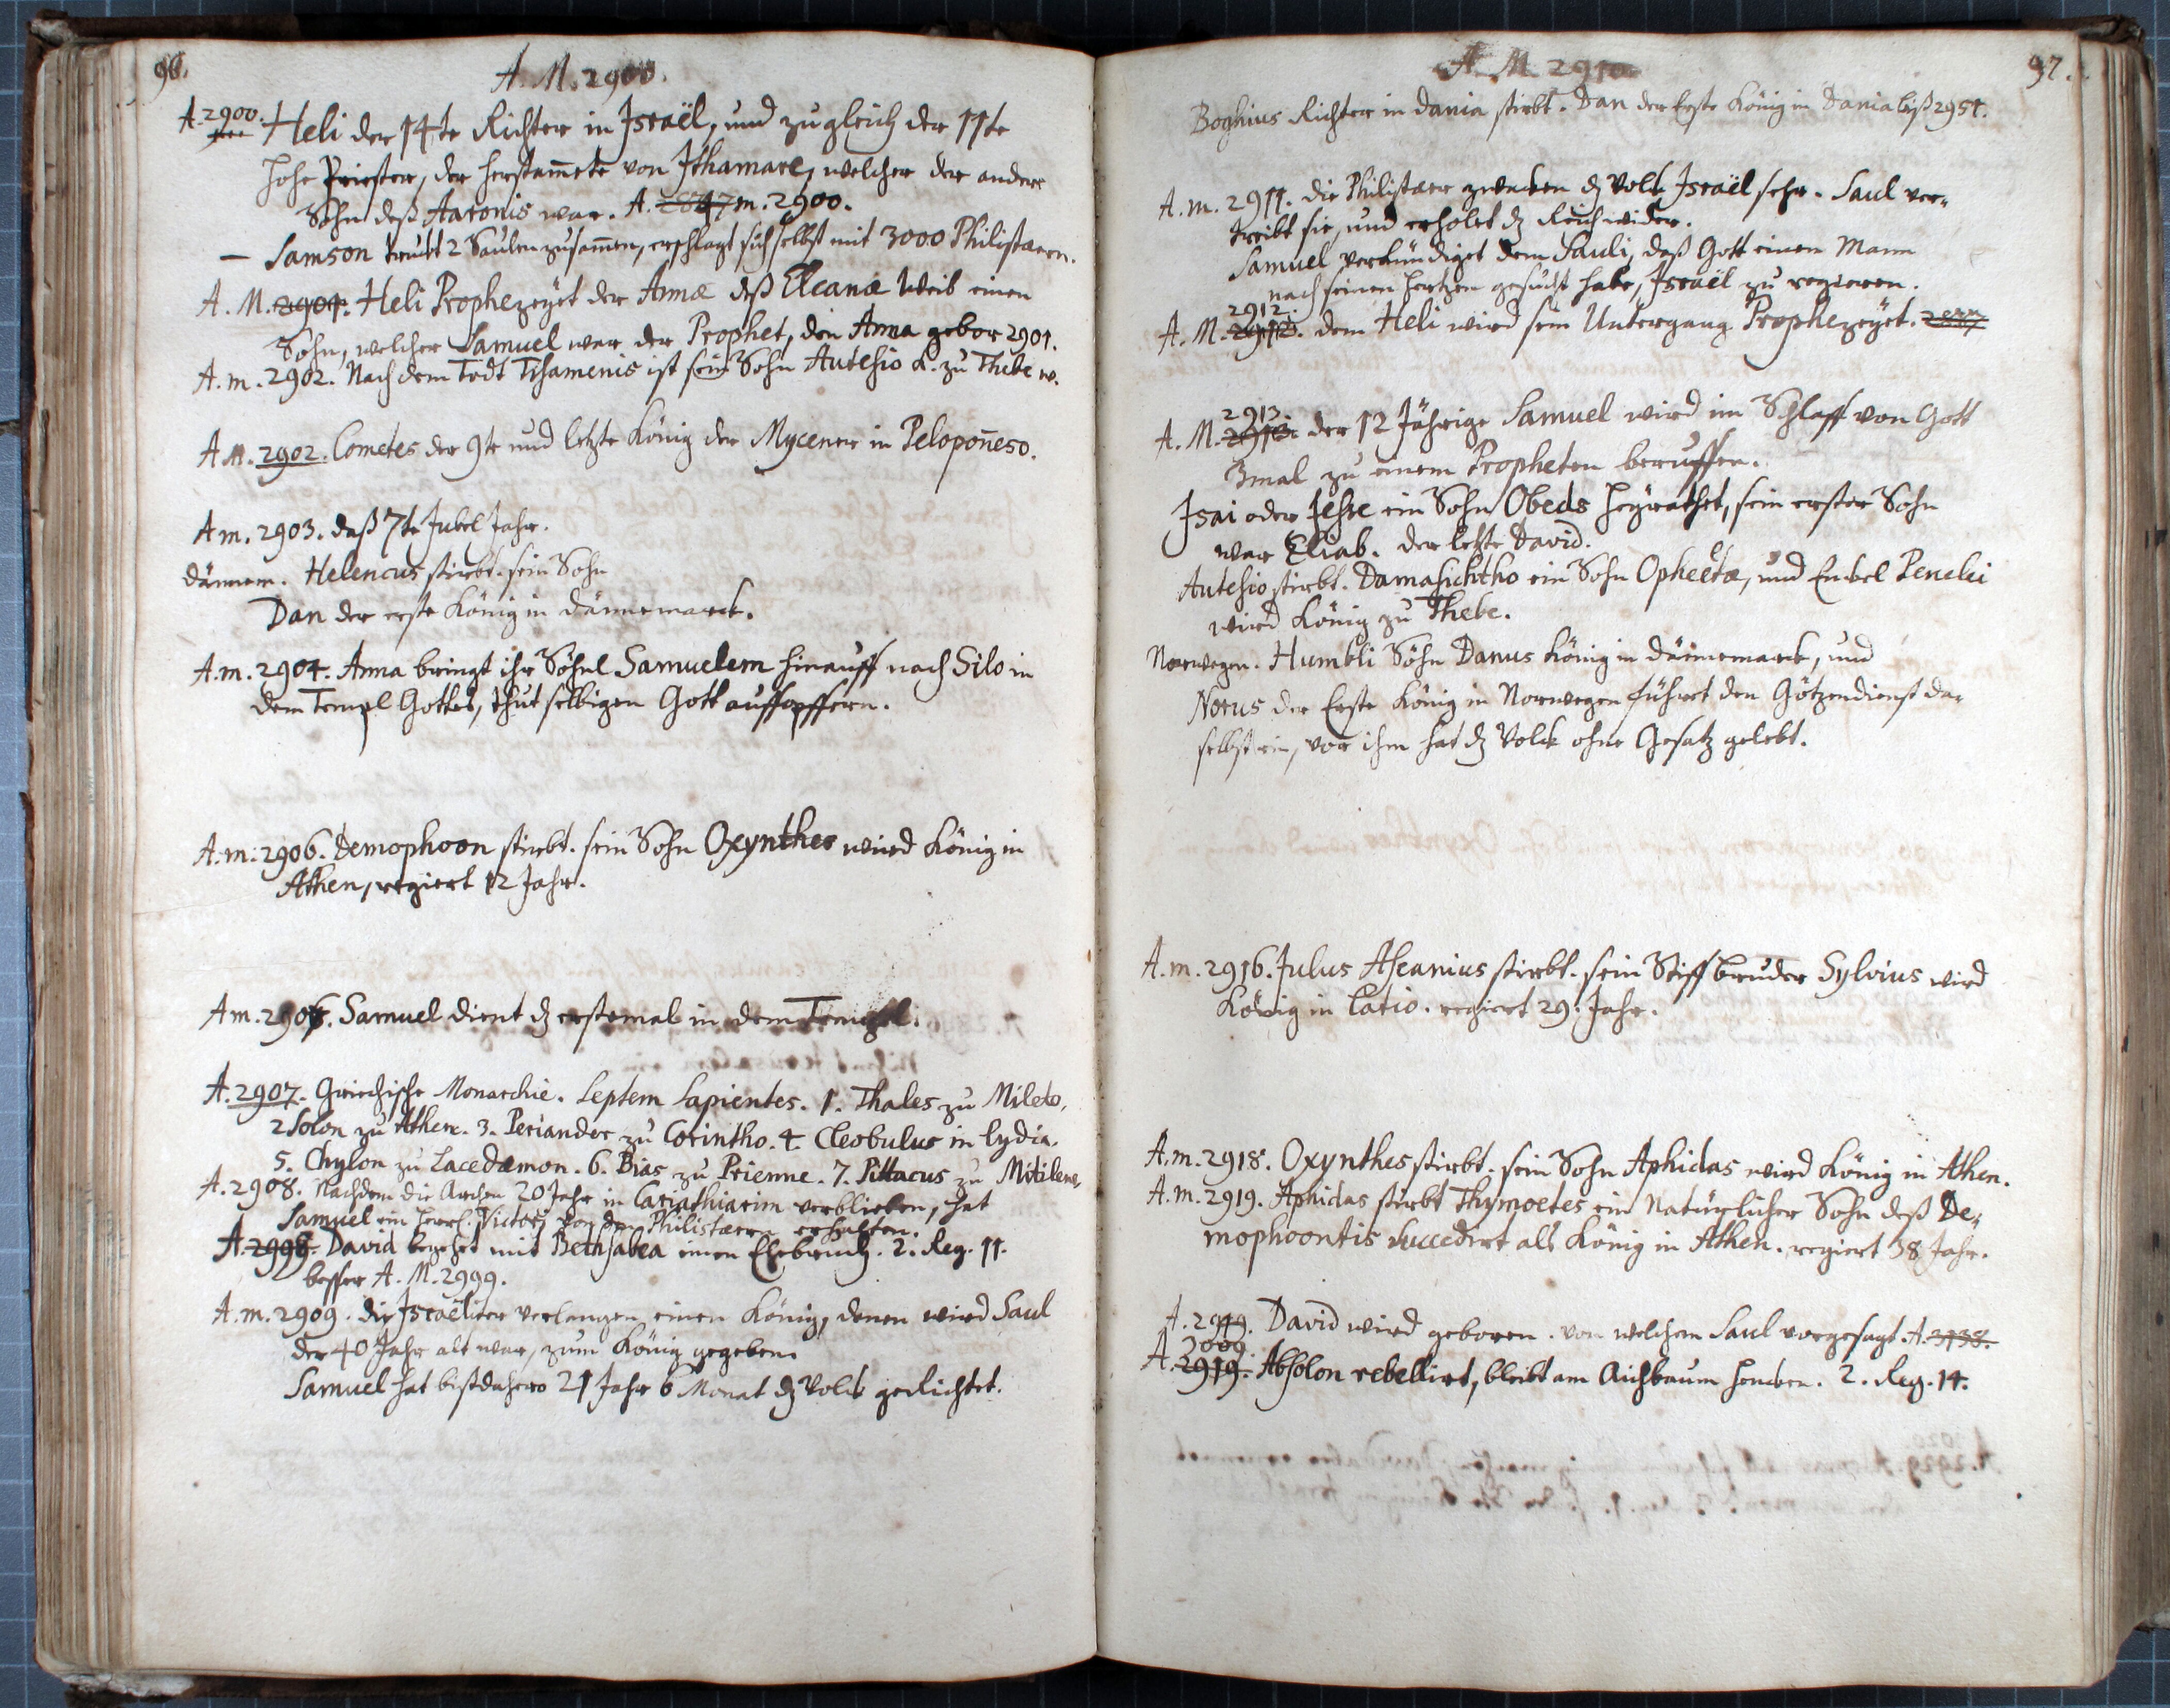 96.
A. M. 2900.
A. 2900. Heli der 14te Richter in Israël, und zugleich der 11te
hohe Priester, der herstam̄ete von Ithamare, welcher der andere
Sohn deß Aaronis war. A. m. 2900.
— Samson truckt 2 Saulen zusam̄en, erschlagt sich selbst mit 3000 Philistæern.
A. M. 2901. Heli Prophezeÿet der Annæ deß Elcanæ Weib einen
Sohn, welcher Samuel war der Prophet, den Anna gebor 2901.
A. m. 2902. Nach dem Todt Tisamenis ist sein Sohn Autesio K. zu Thebe w.
A M. 2902. Cometes der 9te und letzte König der Mycener in Pelopon̄eso.
A m. 2903. daß 7te Jubel Jahr.
Dännem. Helencus stirbt. sein Sohn
Dan der erste König in Dännemarck.
A. m. 2904. Anna bringt ihr Söhnl Samuelem hinauff nach Silo in
dem Templ Gottes, thut selbigen Gott auffopffern.
A. m. 2906. Demophoon stirbt. sein Sohn Oxynthes wird König in
Athen, regiert 12 Jahr.
A m. 2906. Samuel dient dz erstemal in dem Tempel.
A. 2907. Griechische Monarchie. Septem Sapientes. 1. Thales zu Mileto,
2 Solon zu Athen. 3. Periander zu Corintho. 4. Cleobulus in Lydia.
5. Chylon zu Lacedæmon. 6. Bias zu Prienne. 7. Pittacus zu Mitilene,
A. 2908. Nachdem die Archen 20 Jahr in Cariathiarim verblieben, hat
Samuel ein herrl. Victori von den Philistæern erhalten.
A. 2998. David begehet mit Bethsabea einen Ehebruch. 2. Reg. 11.
besser A. M. 2999.
A. m. 2909. die Israëliter verlangen einen König, denen wird Saul
der 40 Jahr alt war, zum König gegeben.
Samuel hat bißdahero 21 Jahr 6 Monat dz Volck gerichtet.
97.
A. M. 2910
Boghius Richter in Dania stirbt. Dan der Erste König in Dania biß 2951.
A. m. 2911. die Philistæer zwacken dz Volck Israël sehr. Saul ver-
treibt sie, und erholet dz Reich wider.
Samuel verkündiget dem Sauli, daß Gott einen Mann
nach seinem Hertzen gesucht habe, Israël zu regieren.
2912.
A. M. dem Heli wird sein Untergang Prophezeÿet.
2913.
A. M. der 12 Jährige Samuel wird im Schlaff von Gott
3mal zu einem Propheten beruffen.
Isai oder Jesse ein Sohn Obeds heÿrathet, sein erster Sohn
war Eliab. der letzte David.
Autesio stirbt. Damasichtho ein Sohn Opheltæ, und Enckel Penelei
wird König zu Thebe.
Norwegen. Humbli Söhn Danus König in Dännemarck, und
Norus der Erste König in Norwegen führet den Götzendienst da-
selbst ein, vor ihm hat dz Volck ohne Gesatz gelebt.
A. m. 2916. Julus Ascanius stirbt. sein Stiffbruder Sylvius wird
König in Latio. regiert 29. Jahr.
A. m. 2918. Oxynthes stirbt. sein Sohn Aphidas wird König in Athen.
A. m. 2919. Aphidas stirbt Thymoetes ein Natürlicher Sohn deß De-
mophoontis succedirt als König in Athen. regiert 38 Jahr.
A. 2919. David wird geboren. von welchem Saul vorgesagt A.
3009.
A. 2919. Absolon rebellirt, bleibt am Aichbaum hencken. 2. Reg. 14.